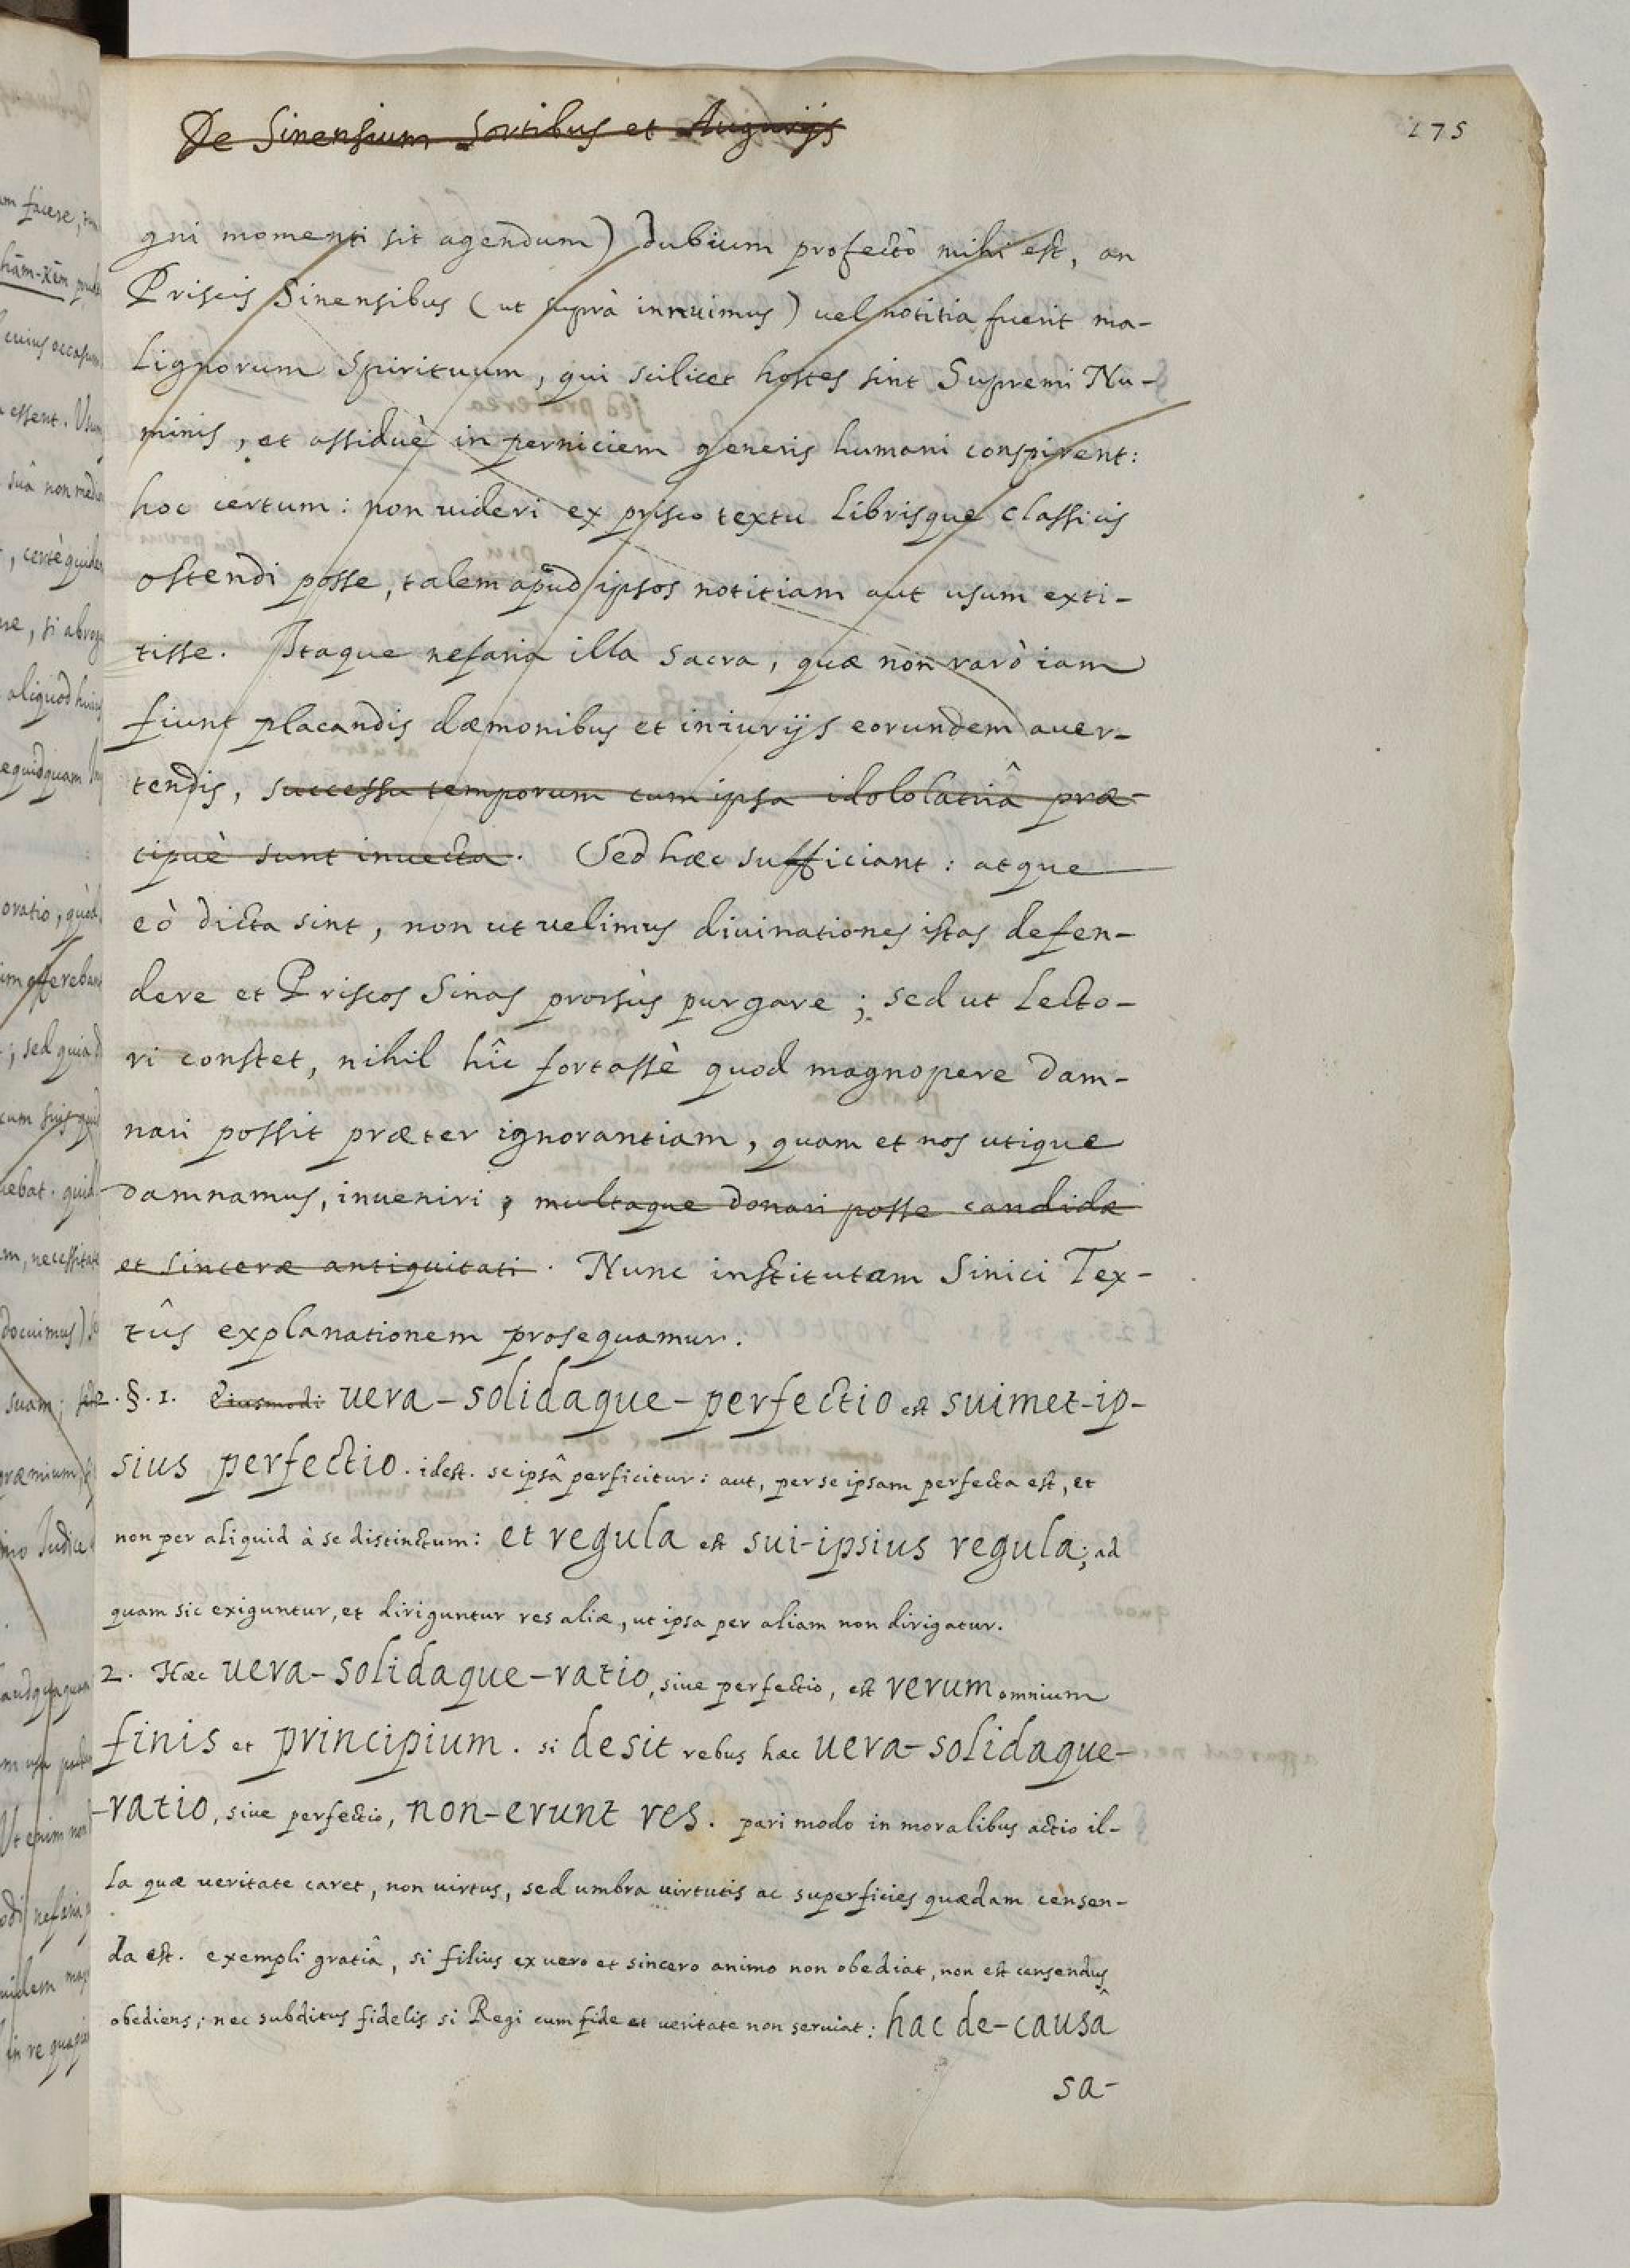 De Sinensium Sortibus et Augurijs
175
gni momenti sit agendum) dubium profectò mihi est, an
Priscis Sinensibus (ut suprà innuimus) vel notitia fuerit ma-
lignorum Spirituum, qui scilicet hostes sint Supremi Nu-
minis, et assiduè in perniciem generis humani conspirent:
hoc certum: non uideri ex prisco textu Librisque Classicis
ostendi posse, talem apud ipsos notitiam aut usum exti-
tisse. Itaque nefaria illa sacra, quæ non rarò iam
fiunt placandis dæmonibus et iniurijs eorundem auer-
tendis, successu temporum cum ipsa idololatriâ præ-
cipuè sunt inuecta. Sed hæc sufficiant: atque
eò dicta sint, non ut velimus diuinationes istas defen-
dere et Priscos Sinas prorsùs purgare; sed ut Lecto-
ri constet, nihil hîc fortassè quod magnopere dam-
nari possit præter ignorantiam, quam et nos utique
damnamus, inueniri; multaque donari posse candidæ
et sinceræ antiquitati. Nunc institutam Sinici Tex-
tûs explanationem prosequamur.
§. 1. Eiusmodi uera-solidaque-perfectio est suimet-ip-
sius perfectio. idest. se ipsâ perficitur: aut, per se ipsam perfecta est, et
non per aliquid à se distinctum: et regula est sui-ipsius regula; ad
quam sic exiguntur, et diriguntur res aliæ, ut ipsa per aliam non dirigatur.
2. Hæc uera-solidaque-ratio, siue perfectio, est rerum omnium
finis et principium. si desit rebus hæc uera-solidaque-
-ratio, siue perfectio, non-erunt res. pari modo in moralibus actio il-
la quæ ueritate caret, non uirtus, sed umbra uirtutis ac superficies quædam censen-
da est. exempli gratiâ, si filius ex uero et sincero animo non obediat, non est censendus
obediens; nec subditus fidelis si Regi cum fide et ueritate non seruiat: hac de-causâ
sa-